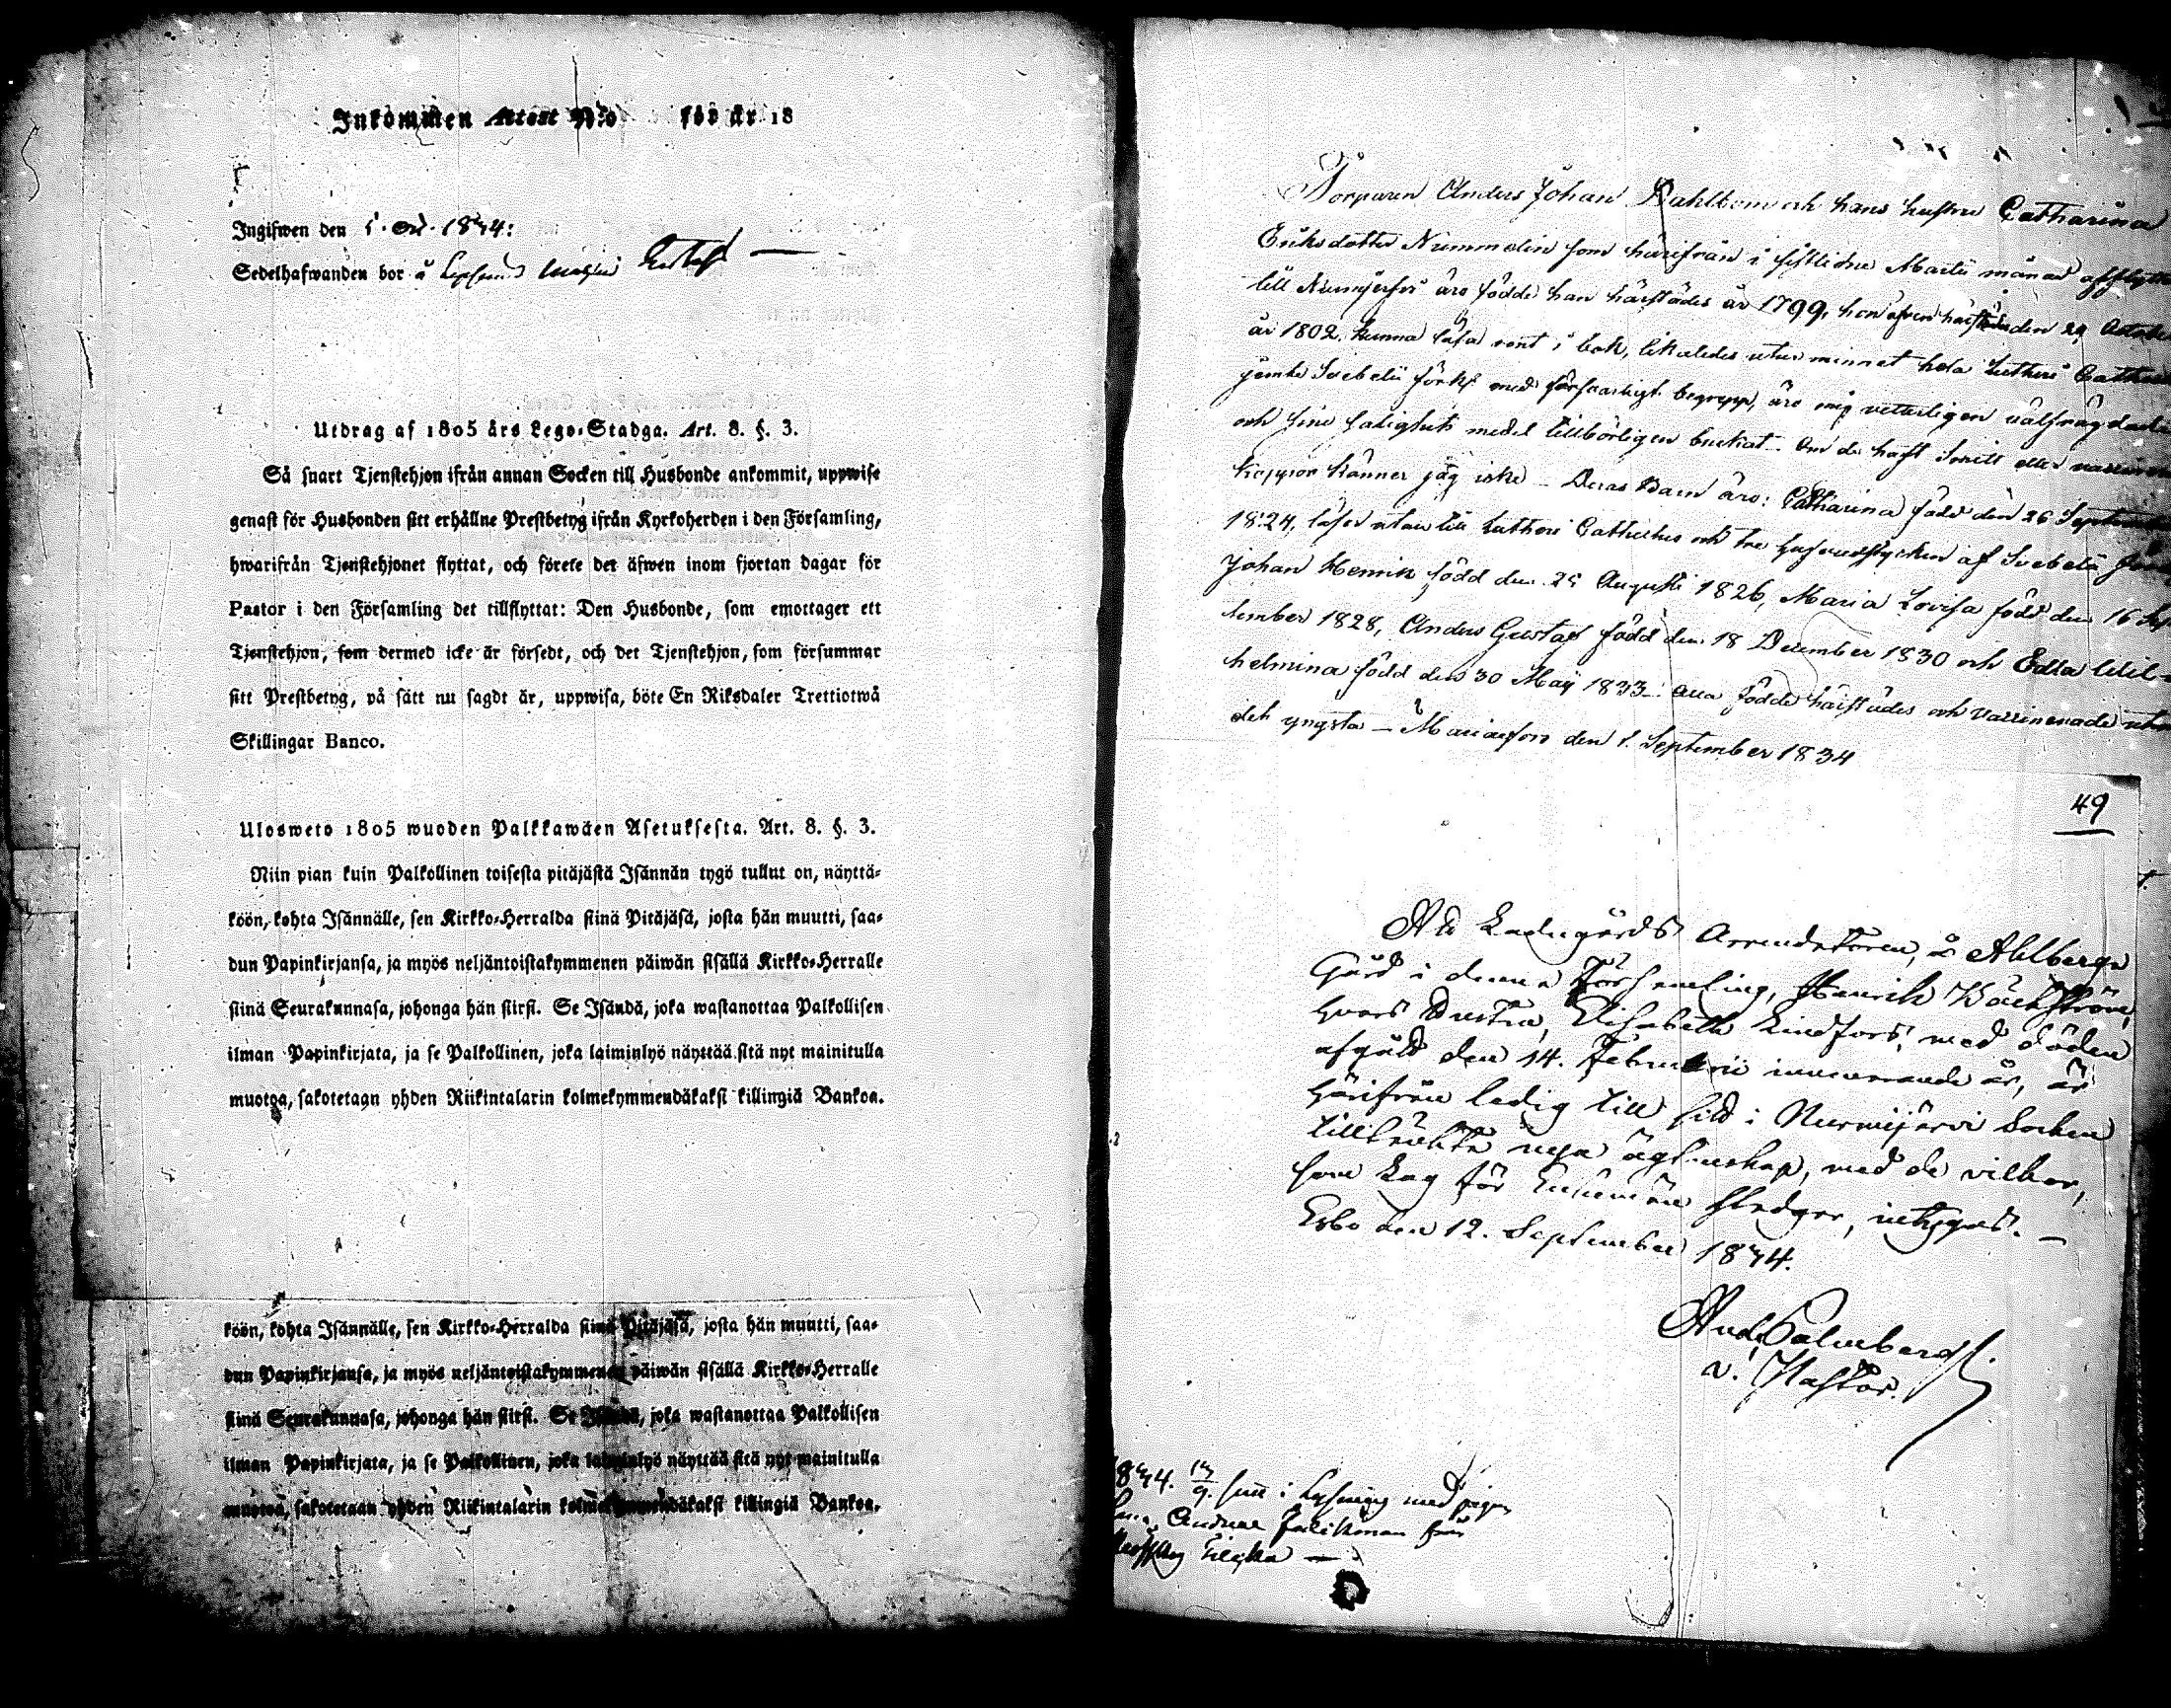 Inkommen Attest N:o för år 18
Ingifwen den 5. Oct. 1834:
Sedelhafwanden bor å
Utdrag af 1805 års Lego-Stadga. Art. 8. §. 3.
Så snart Tjenstehjon ifrån annan Socken till Husbonde ankommit, uppwise
genast för Husbonden sitt erhållne Prestbetyg ifrån Kyrkoherden i den Församling,
hwarifrån Tjenstehjonet flyttat, och förete det äfwen inom fjortan dagar för
Pastor i den Församling det tillflyttat: Den Husbonde, som emottager ett
Tjenstehjon, som dermed icke är försedt, och det Tjenstehjon, som försummar
sitt Prestbetyg, på sätt nu sagdt är, uppwisa, böte En Riksdaler Trettiotwå
Skillingar Banco.
Ulosweto 1805 wuoden Palkkawäen Asetuksesta. Art. 8. §. 3.
Niin pian kuin Palkollinen toisesta pitäjästä Isännän tygö tullut on, näyttä-
köön, kohta Isännälle, sen Kirkko-Herralda siinä Pitäjäsä, josta hän muutti, saa-
dun Papinkirjansa, ja myös neljäntoistakymmenen päiwän sisällä Kirkko-Herralle
siinä Seurakunnasa, johonga hän siirsi. Se Isändä, joka wastanottaa Palkollisen
ilman Papinkirjata, ja se Palkollinen, joka laiminlyö näyttää sitä nyt mainitulla
muotoa, sakotetaan yhden Riikintalarin kolmekymmendäkaksi killingiä Bankoa.
köön, kohta Isännälle, sen Kirkko-Herralda siinä Pitäjäsä, josta hän muutti, saa-
dun Papinkirjansa, ja myös neljäntoistakymmenen päiwän sisällä Kirkko-Herralle
siinä Seurakunnasa, johonga hän siirsi. Se Isändä, joka wastanottaa Palkollisen
ilman Papinkirjata, ja se Palkollinen, joka laiminlyö näyttää sitä nyt mainitulla
muotoa, sakotetaan yhden Riikintalarin kolmekymmendäkaksi killingiä Bankoa.
Torparen Anders Johan Dahlbom och hans hustru Catharina
Eriksdotter Nummelin som härifrån i sistledne Martii månad afflytta
till Nurmijerfvi äro födde han härstädes år 1799, hon äfven härstädes den 29
år 1802, kunna läsa rent i bok, likaledes utur minnet hela Lutheri
jemte Svebelii förkl med försvarligt begrepp, äro mig vetterligen välfrägdade
och sine salighets medel tillbörligen brukat. Om de haft
koppor känner jag icke - Deras Barn äro: Catharina född den 26 September
1824, läser utan till Lutheri Catheches och tre af Svebelii
Johan Henrik född den 25 Augusti 1826, Maria Lovisa född den 16 Sep
tember 1828, Anders Gustaf född den 18 December 1830 och Edla Wil-
helmina född den 30 Maij 1833 alla födde härstädes och vaccinerade utom
det yngsta - Mariæfors den 1. September 1834
49
Att Ladugårds Arrendatoren, å Alberga
Gård i denna Församling, Henrik Bäckström,
hvars Hustru, Elisabeth Lindfors, med döden
afgått den 14. Februarii innevarande år, är
härifrån ledig till sitt i Nurmijärvi Socken
tilltänkta nya ägtenskap, med de vilkor,
som Lag för Enkemän stadgar, intygas. -
Esbo den 12. September 1834.
And. Palmberg
v. Pastor.
1834. 13/9. i Lysning med pigan